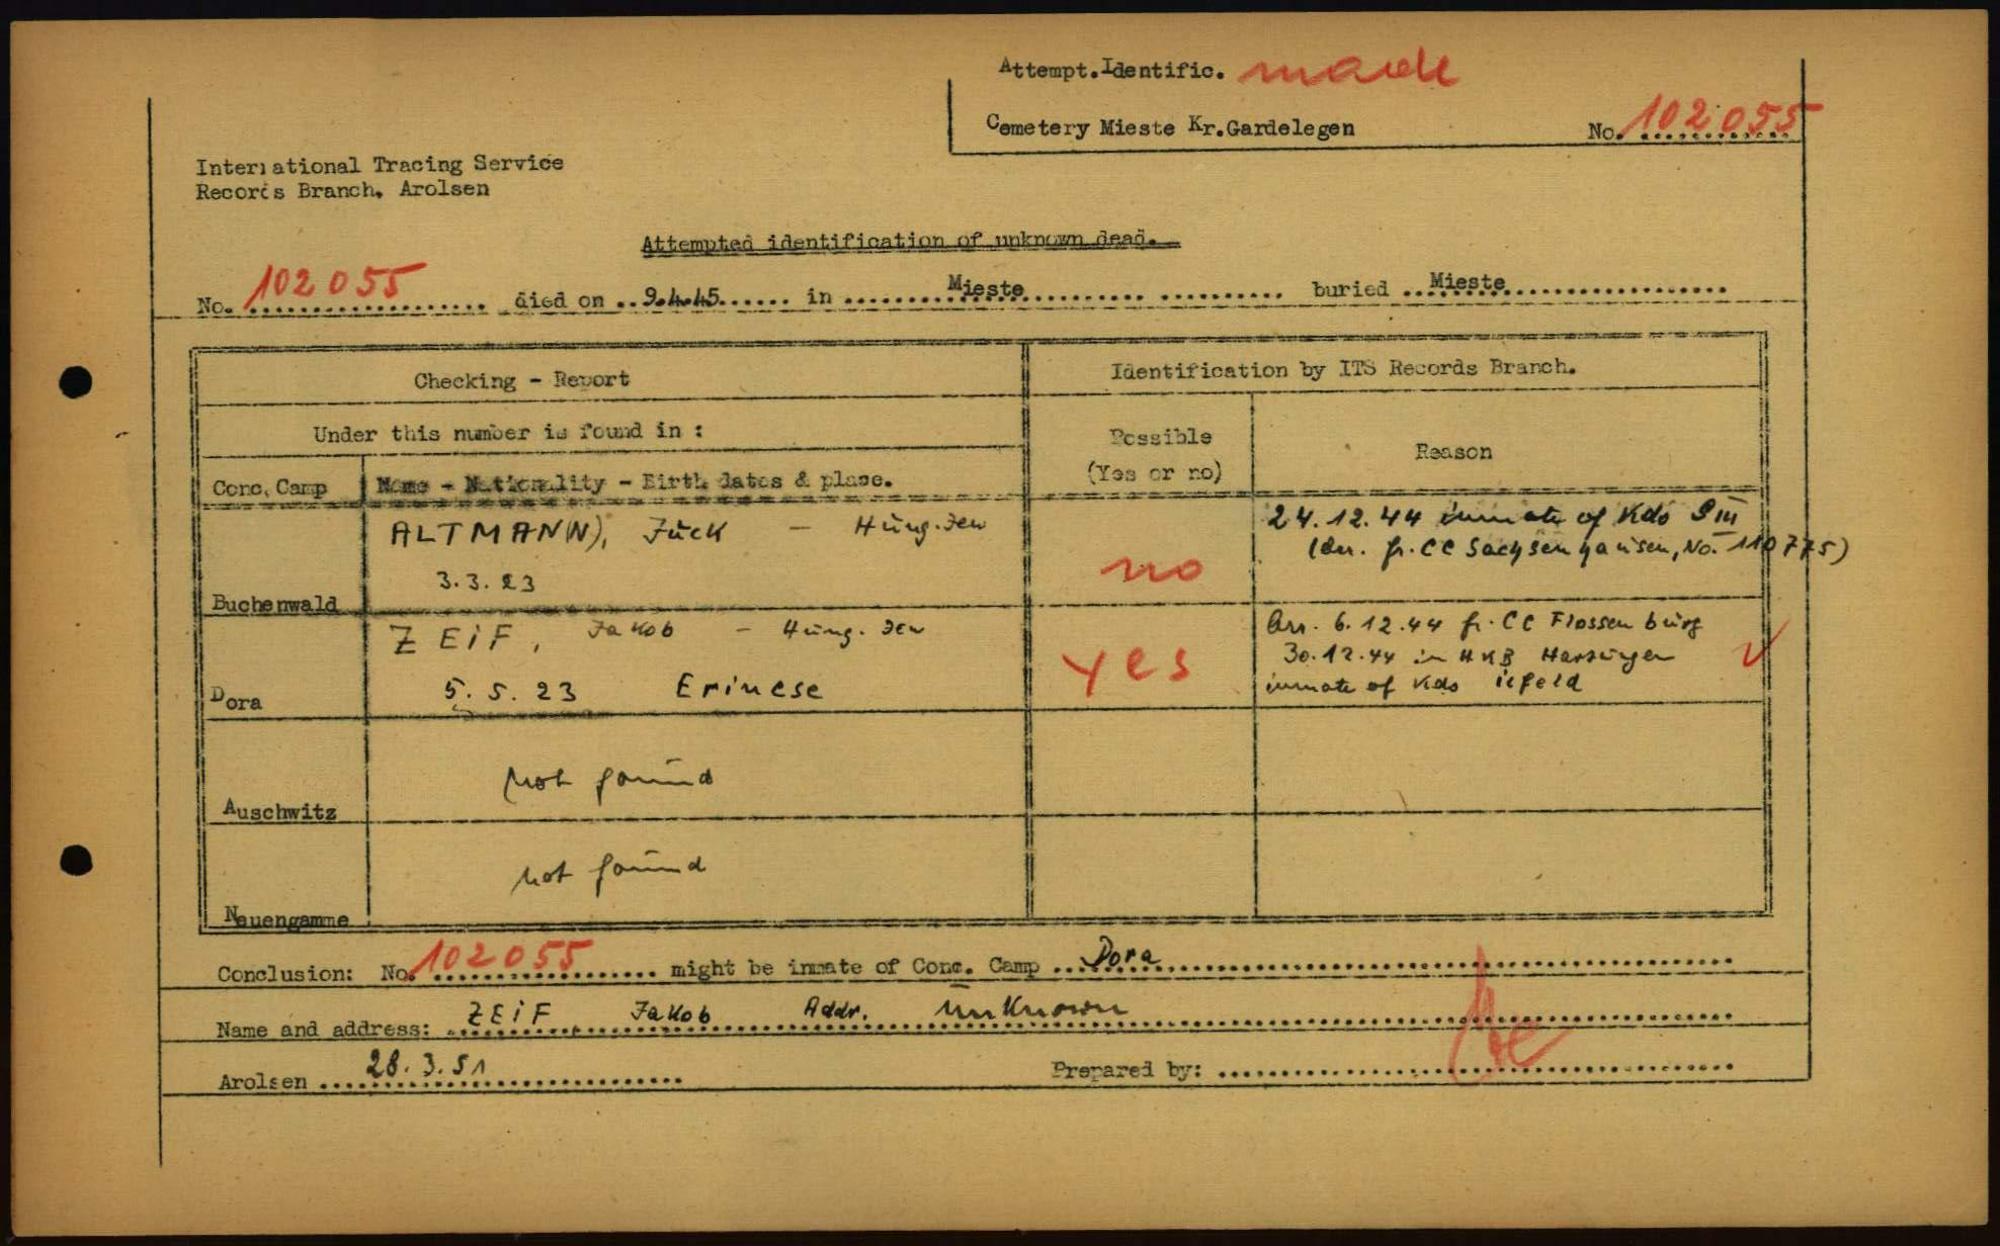 Attempt. Identific. made
Cemetery Mieste Kr. Gardelegen No. 102055
International Tracing Service
Records Branch, Arolsen
Attempted identification of unknown dead.
No. 102055 died on 9.4.45 in Mieste buried Mieste
Checking - Report
Identification by ITS Records Branch.
Under this number is found in :
Possible
(Yes or no)
Reason
Conc. Camp Name - Nationality - Birth dates & place.
Buchenwald ALTMAN(N), Jück - Hung. Jew
3.3.23
no
24.12.44 inmate of Kdo S III
(Arr. fr. CC Sachsenhausen, No. 110775)
Dora ZEIF, Jakob - Hung. Jew
5.5.23 Erinese
yes
Arr. 6.12.44 fr. CC Flossenbürg
30.12.44 in HKB Harzungen
inmate of Kdo Ilfeld
Auschwitz not found
Neuengamme not found
Conclusion: No. 102055 might be inmate of Conc. Camp Dora
Name and address: ZEIF Jakob Addr. unknown
Arolsen 28.3.51 Prepared by: